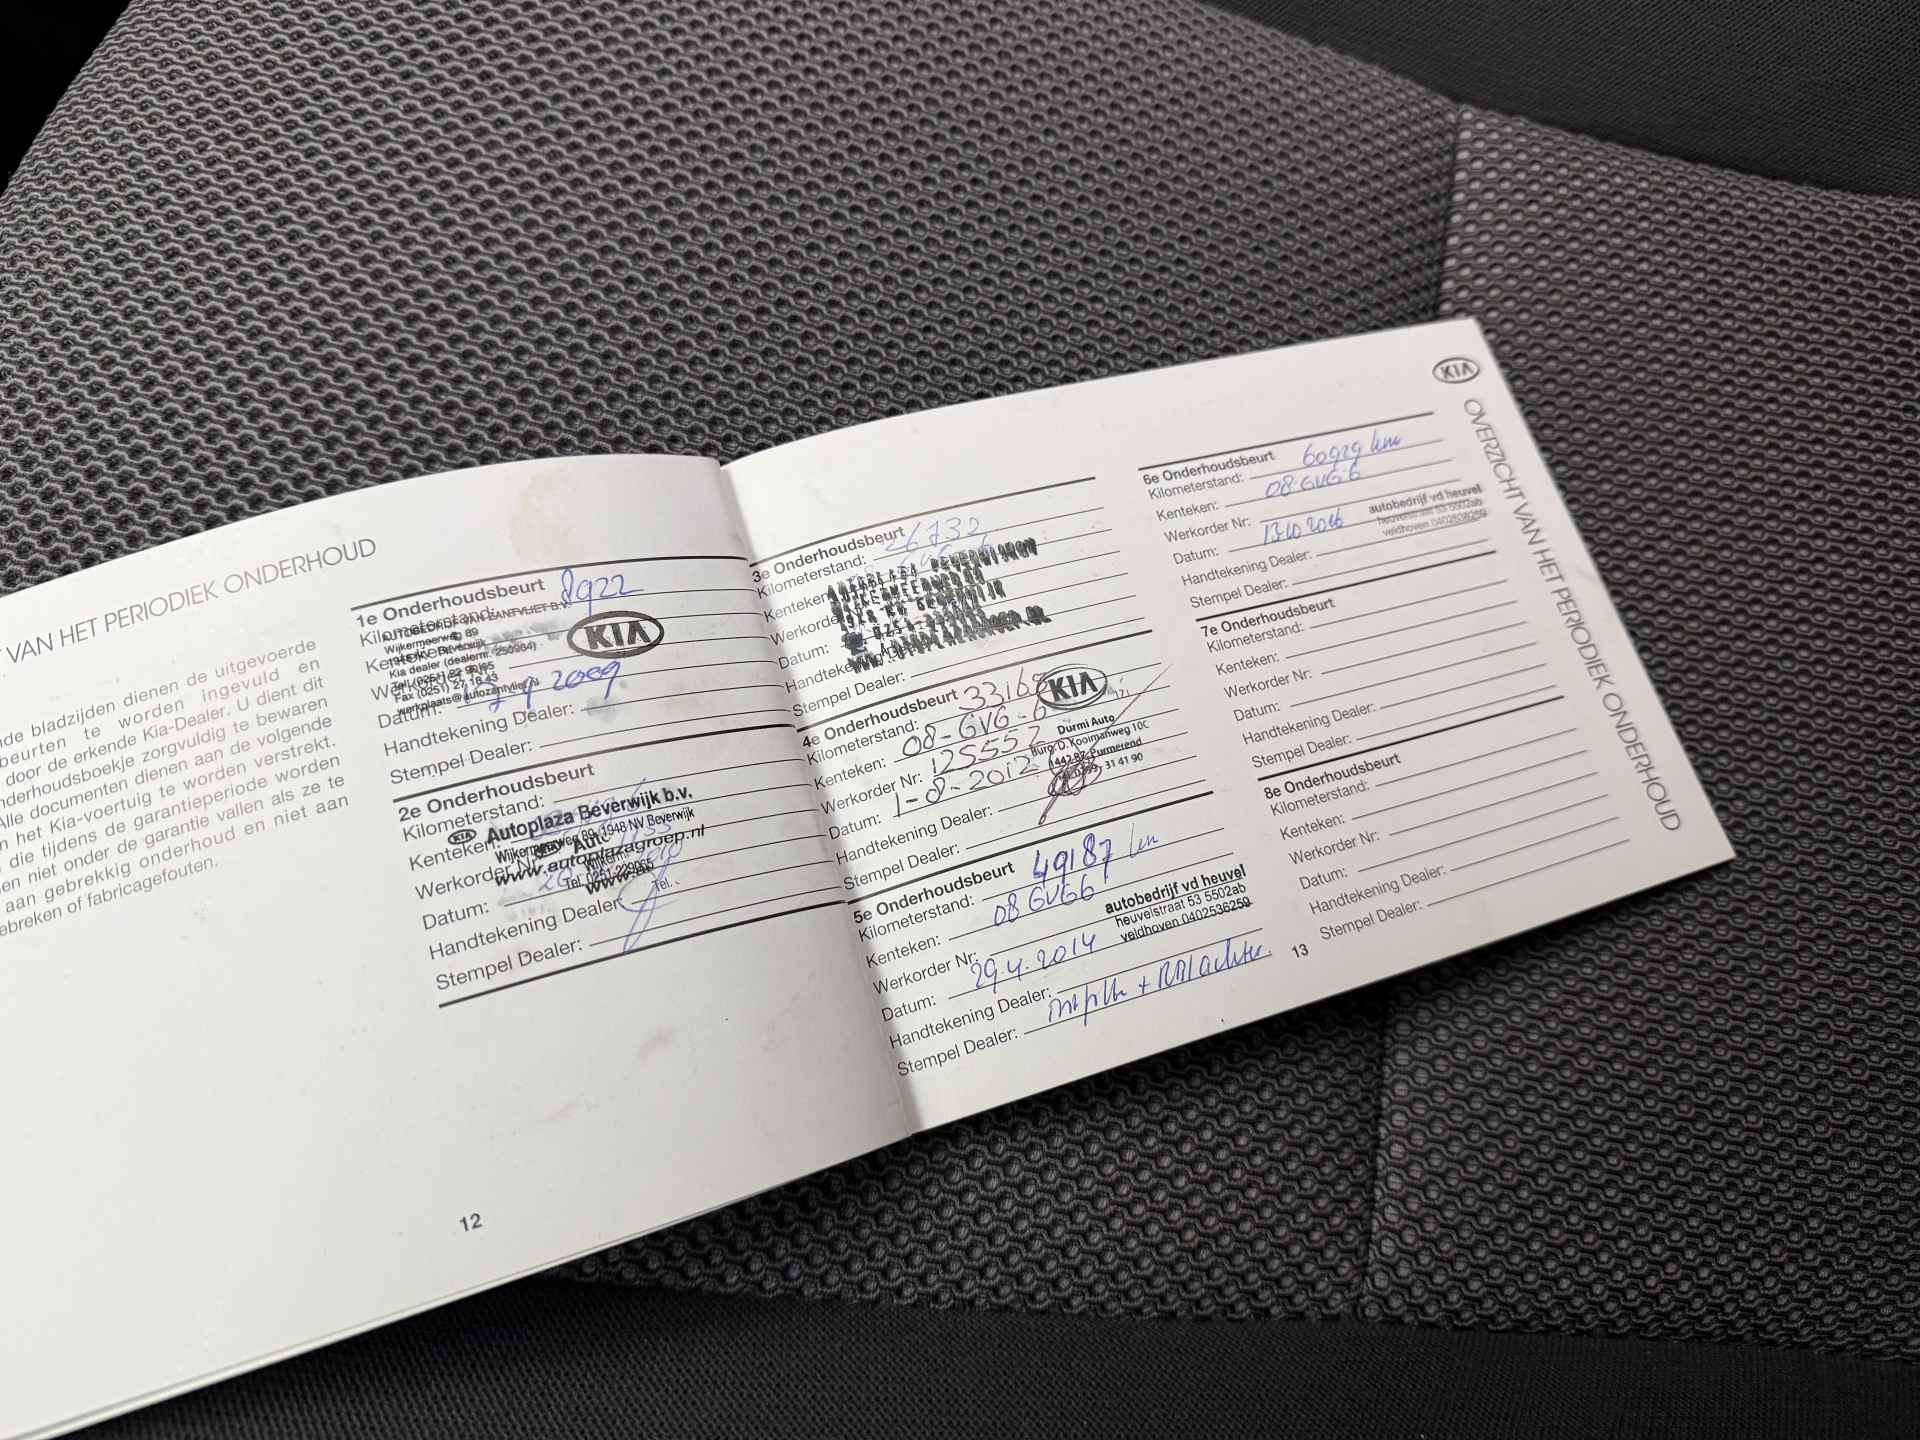 VAN HET PERIODIEK ONDERHOUD
nde bladzijden dienen de uitgevoerde
beurten te worden ingevuld en
door de erkende Kia-Dealer. U dient dit
nderhoudsboekje zorgvuldig te bewaren
Alle documenten dienen aan de volgende
n het Kia-voertuig te worden verstrekt.
die tijdens de garantieperiode worden
en niet onder de garantie vallen als ze te
aan gebrekkig onderhoud en niet aan
ebreken of fabricagefouten.
1e Onderhoudsbeurt
Kilometerstand: 8922
AUTOBEDRIJF VAN ZANTVLIET B.V.
Wijkermeerweg 89
Beverwijk
Kia dealer (dealernr. 250984)
Fax (0251) 27 18 43
werkplaats@autozantvliet.nl
KIA
Datum: 9 2009
Handtekening Dealer:
Stempel Dealer:
2e Onderhoudsbeurt
Kilometerstand:
Kenteken:
KIA Autoplaza Beverwijk b.v.
Wijkermeerweg 89, 1948 NV Beverwijk
www.autoplazagroep.nl
Tel. 0251-229965
Werkorder Nr:
Datum:
Handtekening Dealer:
Stempel Dealer:
12
3e Onderhoudsbeurt
Kilometerstand: 26732
Kenteken
AUTOPLAZA BEVERWIJK
Werkorder
Datum:
Handtekening
Stempel Dealer:
4e Onderhoudsbeurt
Kilometerstand: 33168
Kenteken: 08-GVG-6
Werkorder Nr: 125552
Datum: 1-8-2012
KIA
Durmi Auto
Burg. D. Kooimanweg 10C
Purmerend
31 41 90
Handtekening Dealer:
Stempel Dealer:
5e Onderhoudsbeurt
Kilometerstand: 49187 km
Kenteken: 08 GVG6
autobedrijf vd heuvel
heuvelstraat 53 5502ab
veldhoven 0402536259
Werkorder Nr:
Datum: 29.4.2014
Handtekening Dealer:
Stempel Dealer:
13
6e Onderhoudsbeurt
Kilometerstand: 60929 km
Kenteken: 08-GVG 6
Werkorder Nr:
autobedrijf vd heuvel
heuvelstraat 53 5502ab
veldhoven 0402536259
Datum: 13-10 2016
Handtekening Dealer:
Stempel Dealer:
7e Onderhoudsbeurt
Kilometerstand:
Kenteken:
Werkorder Nr:
Datum:
Handtekening Dealer:
Stempel Dealer:
8e Onderhoudsbeurt
Kilometerstand:
Kenteken:
Werkorder Nr:
Datum:
Handtekening Dealer:
Stempel Dealer:
KIA
OVERZICHT VAN HET PERIODIEK ONDERHOUD